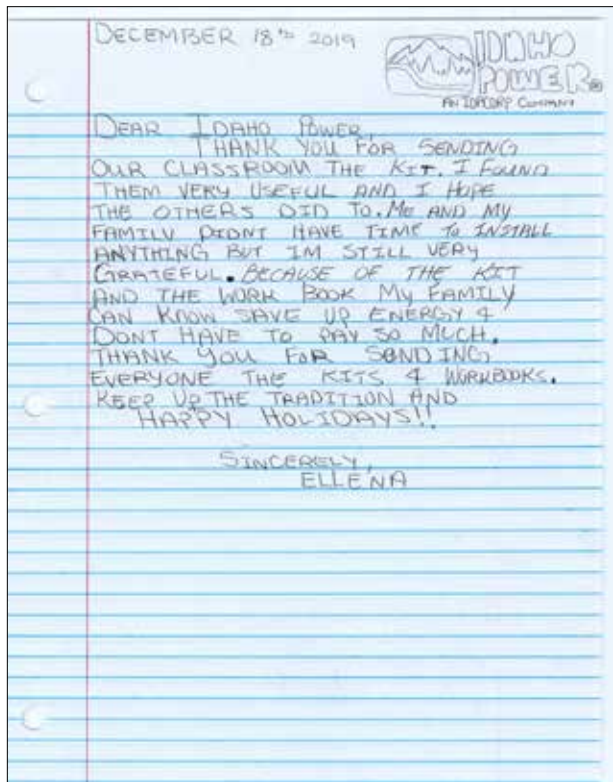 DECEMBER 18th 2019
IDAHO
POWER®
AN IDACORP COMPANY
DEAR IDAHO POWER,
THANK YOU FOR SENDING
OUR CLASSROOM THE KIT. I FOUND
THEM VERY USEFUL AND I HOPE
THE OTHERS DID TO. ME AND MY
FAMILY DIDNT HAVE TIME TO INSTALL
ANYTHING BUT IM STILL VERY
GRATEFUL. BECAUSE OF THE KIT
AND THE WORK BOOK MY FAMILY
CAN KNOW SAVE UP ENERGY &
DONT HAVE TO PAY SO MUCH.
THANK YOU FOR SENDING
EVERYONE THE KITS & WORKBOOKS.
KEEP UP THE TRADITION AND
HAPPY HOLIDAYS!!
SINCERELY,
ELLENA